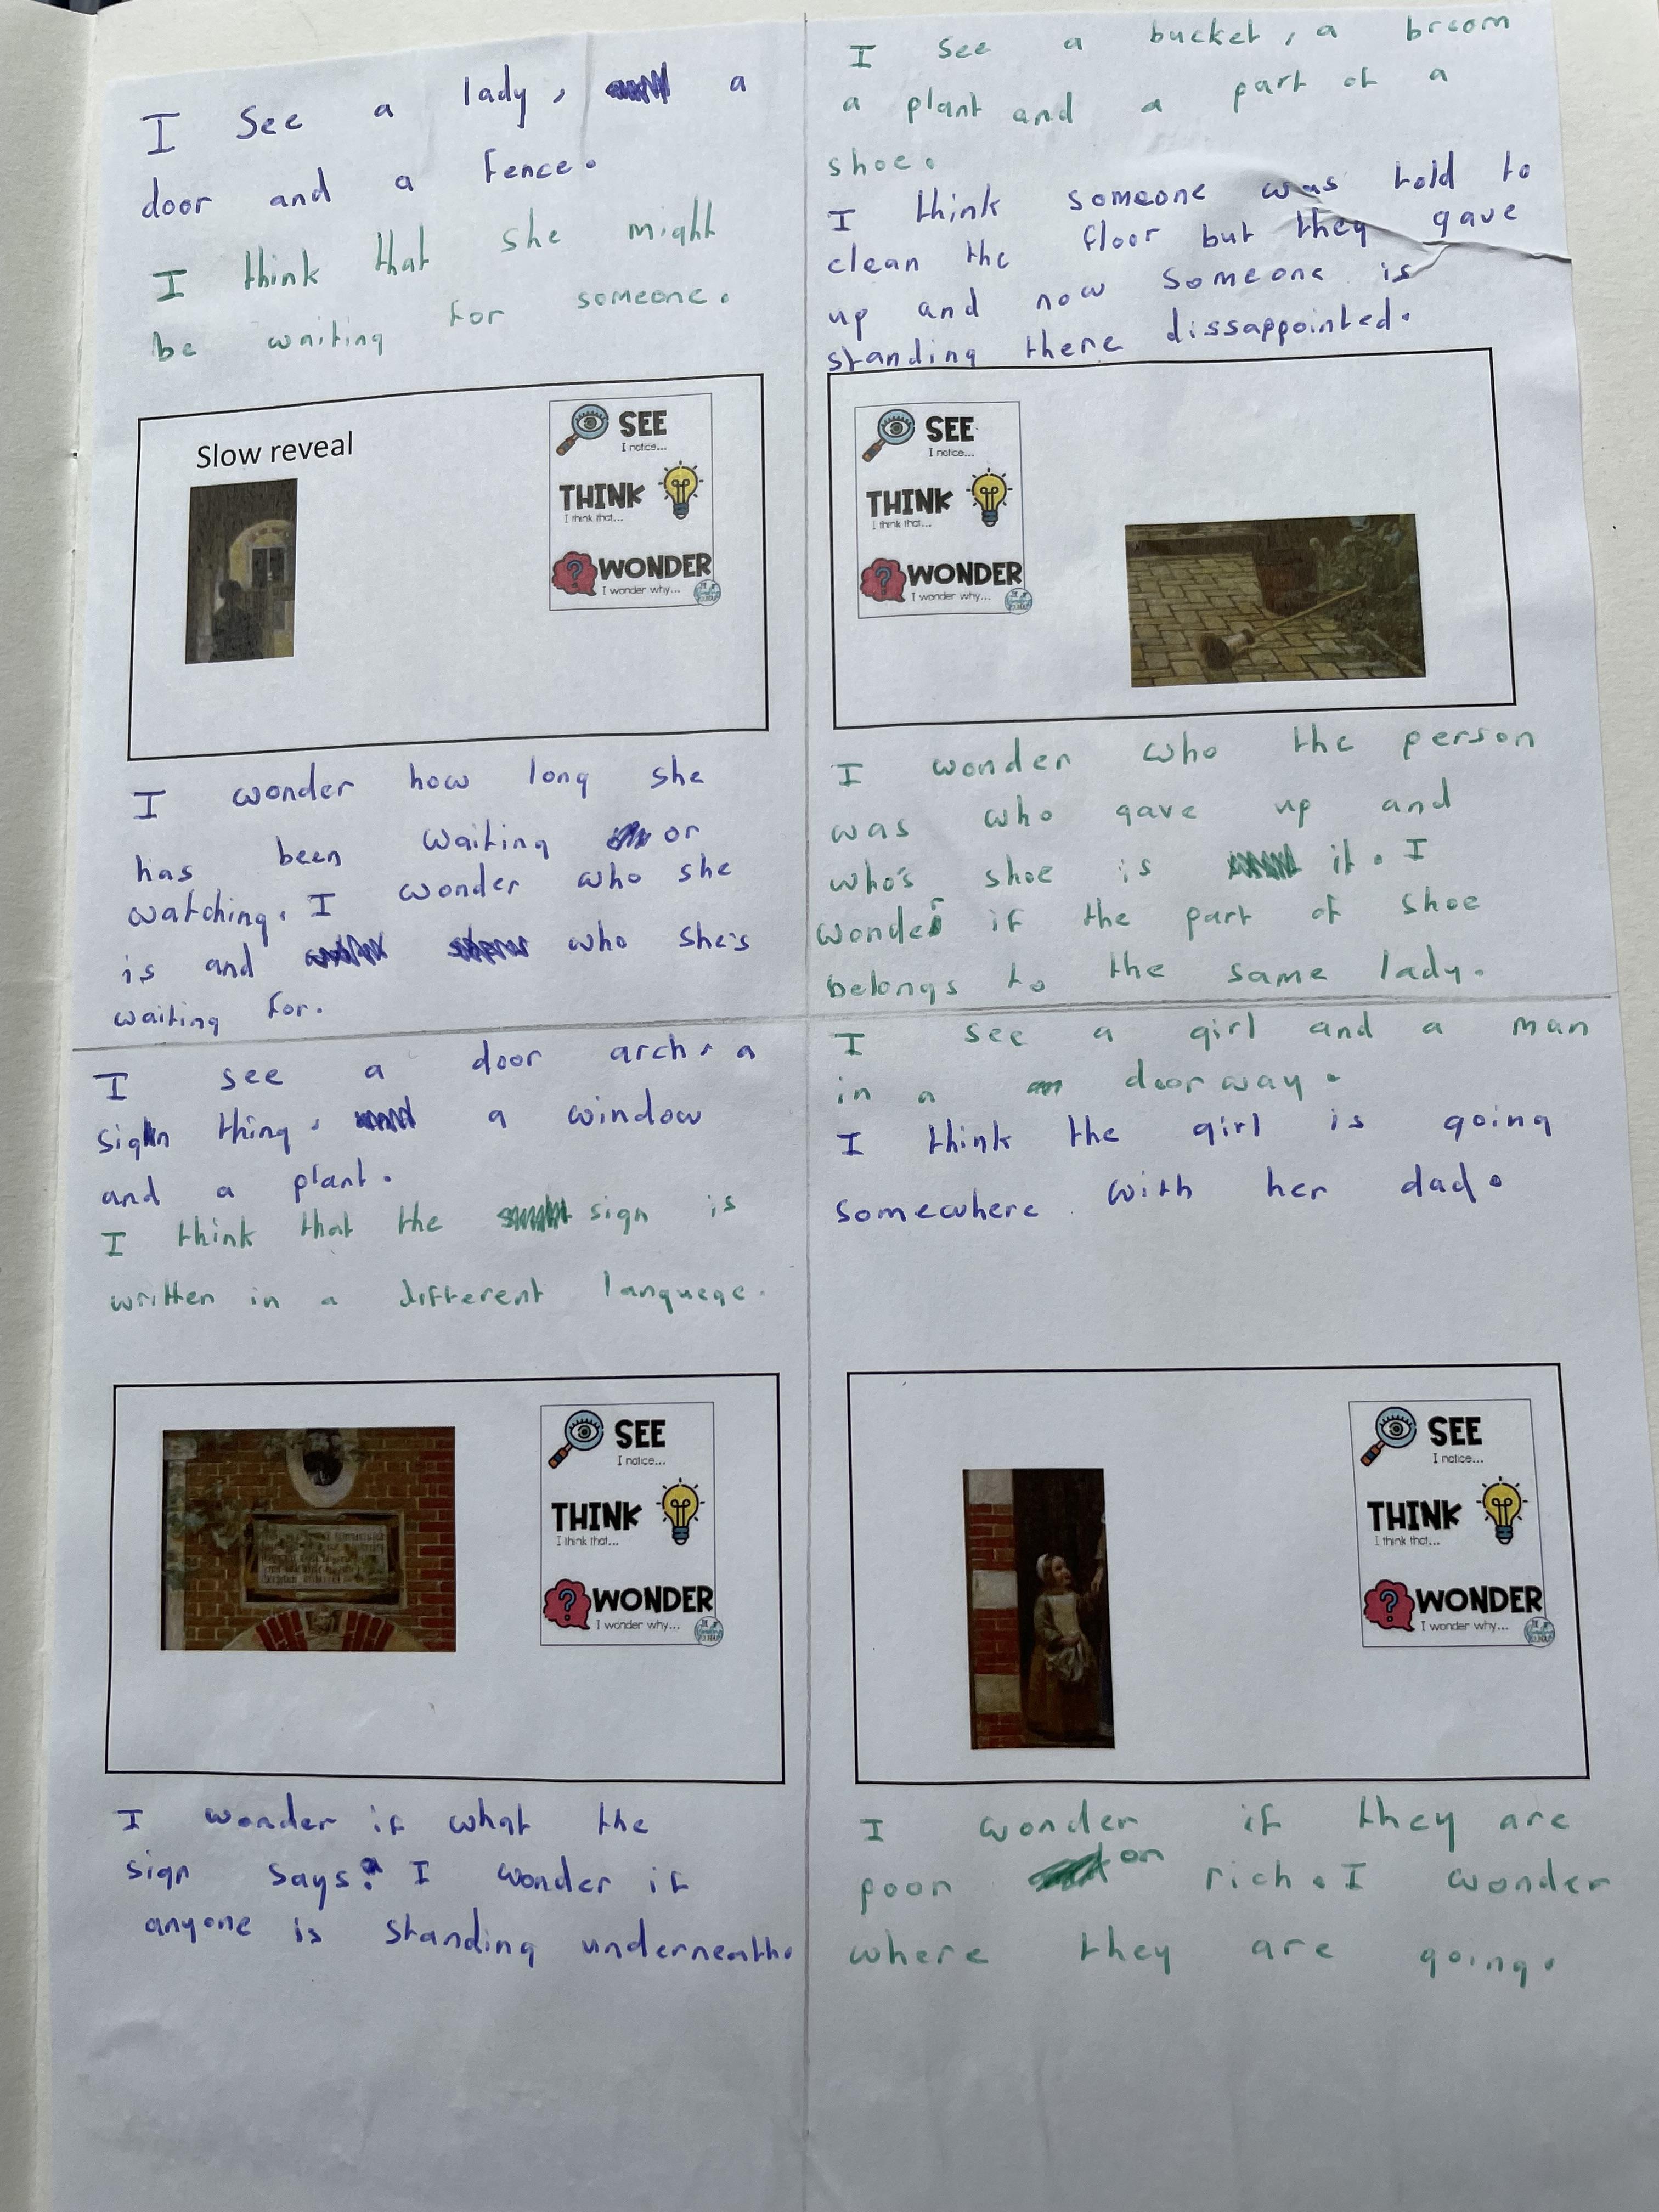 I see a lady, a
door and a fence.
I think that she might
be waiting for someone.
Slow reveal
SEE
I notice...
THINK
I think that...
WONDER
I wonder why...
I wonder how long she
has been waiting or
watching. I wonder who she
is and who she's
waiting for.
I see a bucket, a broom
a plant and a part of a
shoe.
I think someone was told to
clean the floor but they gave
up and now someone is
standing there dissappointed.
SEE
I notice...
THINK
I think that...
WONDER
I wonder why...
I wonder who the person
was who gave up and
who's shoe is it. I
wonder if the part of shoe
belongs to the same lady.
I see a door arch, a
sign thing, a window
and a plant.
I think that the sign is
written in a different languege.
SEE
I notice...
THINK
I think that...
WONDER
I wonder why...
I wonder if what the
sign says? I wonder if
anyone is standing underneath.
I see a girl and a man
in a doorway.
I think the girl is going
somewhere with her dad.
SEE
I notice...
THINK
I think that...
WONDER
I wonder why...
I wonder if they are
poor or rich. I wonder
where they are going.